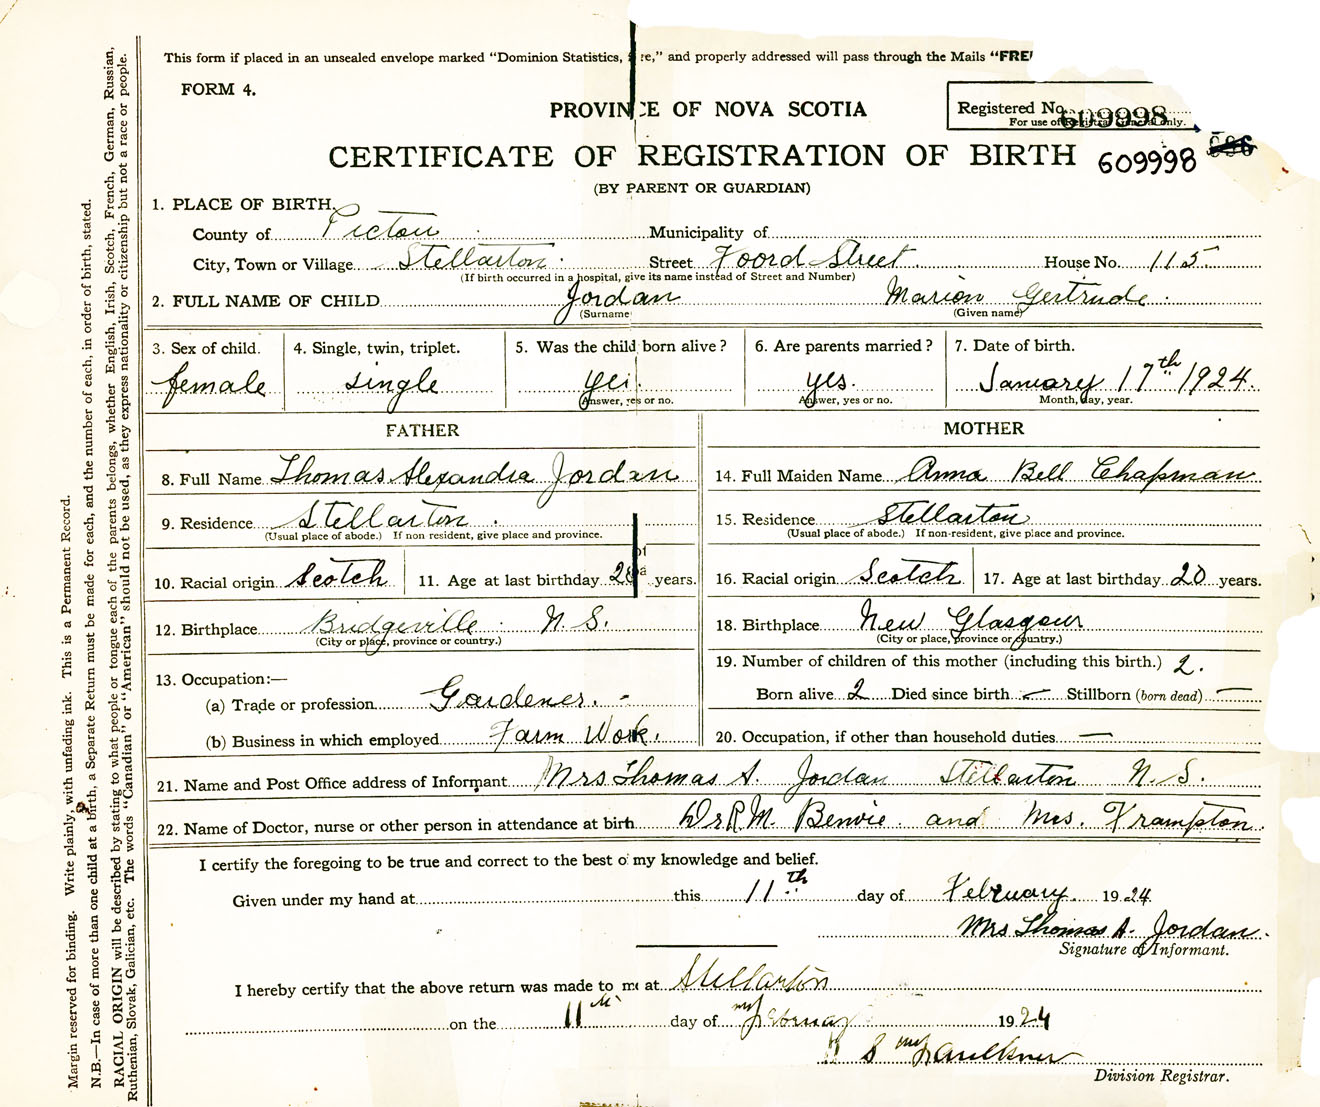 This form if placed in an unsealed envelope marked "Dominion Statistics, re," and properly addressed will pass through the Mails "FRE
FORM 4.
PROVINCE OF NOVA SCOTIA
Registered No. 609998
For use of Registrar General only.
CERTIFICATE OF REGISTRATION OF BIRTH 609998
(BY PARENT OR GUARDIAN)
1. PLACE OF BIRTH.
County of Pictou Municipality of
City, Town or Village Stellarton. Street Foord Street. House No. 115
(If birth occurred in a hospital, give its name instead of Street and Number)
2. FULL NAME OF CHILD Jordan Marion Gertrude.
(Surname) (Given name)
3. Sex of child. 4. Single, twin, triplet. 5. Was the child born alive? 6. Are parents married? 7. Date of birth.
female single yes. yes. January 17th 1924.
Answer, yes or no. Answer, yes or no. Month, day, year.
FATHER MOTHER
8. Full Name Thomas Alexandra Jordan 14. Full Maiden Name Anna Bell Chapman
9. Residence Stellarton. 15. Residence Stellarton
(Usual place of abode.) If non resident, give place and province. (Usual place of abode.) If non-resident, give place and province.
10. Racial origin Scotch 11. Age at last birthday years. 16. Racial origin Scotch 17. Age at last birthday 20 years.
12. Birthplace Bridgeville N.S. 18. Birthplace New Glasgow
(City or place, province or country.) (City or place, province or country.)
19. Number of children of this mother (including this birth.) 2.
13. Occupation:—
(a) Trade or profession Gardener. - Born alive 2 Died since birth — Stillborn (born dead) —
(b) Business in which employed Farm Work. 20. Occupation, if other than household duties —
21. Name and Post Office address of Informant Mrs Thomas A. Jordan Stellarton N.S.
22. Name of Doctor, nurse or other person in attendance at birth Dr R.M. Benvie. and Mrs. Frampton.
I certify the foregoing to be true and correct to the best of my knowledge and belief.
Given under my hand at this 11th day of February. 1924.
Mrs Thomas A. Jordan.
Signature of Informant.
I hereby certify that the above return was made to me at Stellarton
on the 11th day of February 1924
Faulkner
Division Registrar.
Margin reserved for binding. Write plainly, with unfading ink. This is a Permanent Record.
N.B.—In case of more than one child at a birth, a Separate Return must be made for each, and the number of each, in order of birth, stated.
RACIAL ORIGIN will be described by stating to what people or tongue each of the parents belongs, whether English, Irish, Scotch, French, German, Russian,
Ruthenian, Slovak, Galician, etc. The words "Canadian" or "American" should not be used, as they express nationality or citizenship but not a race or people.